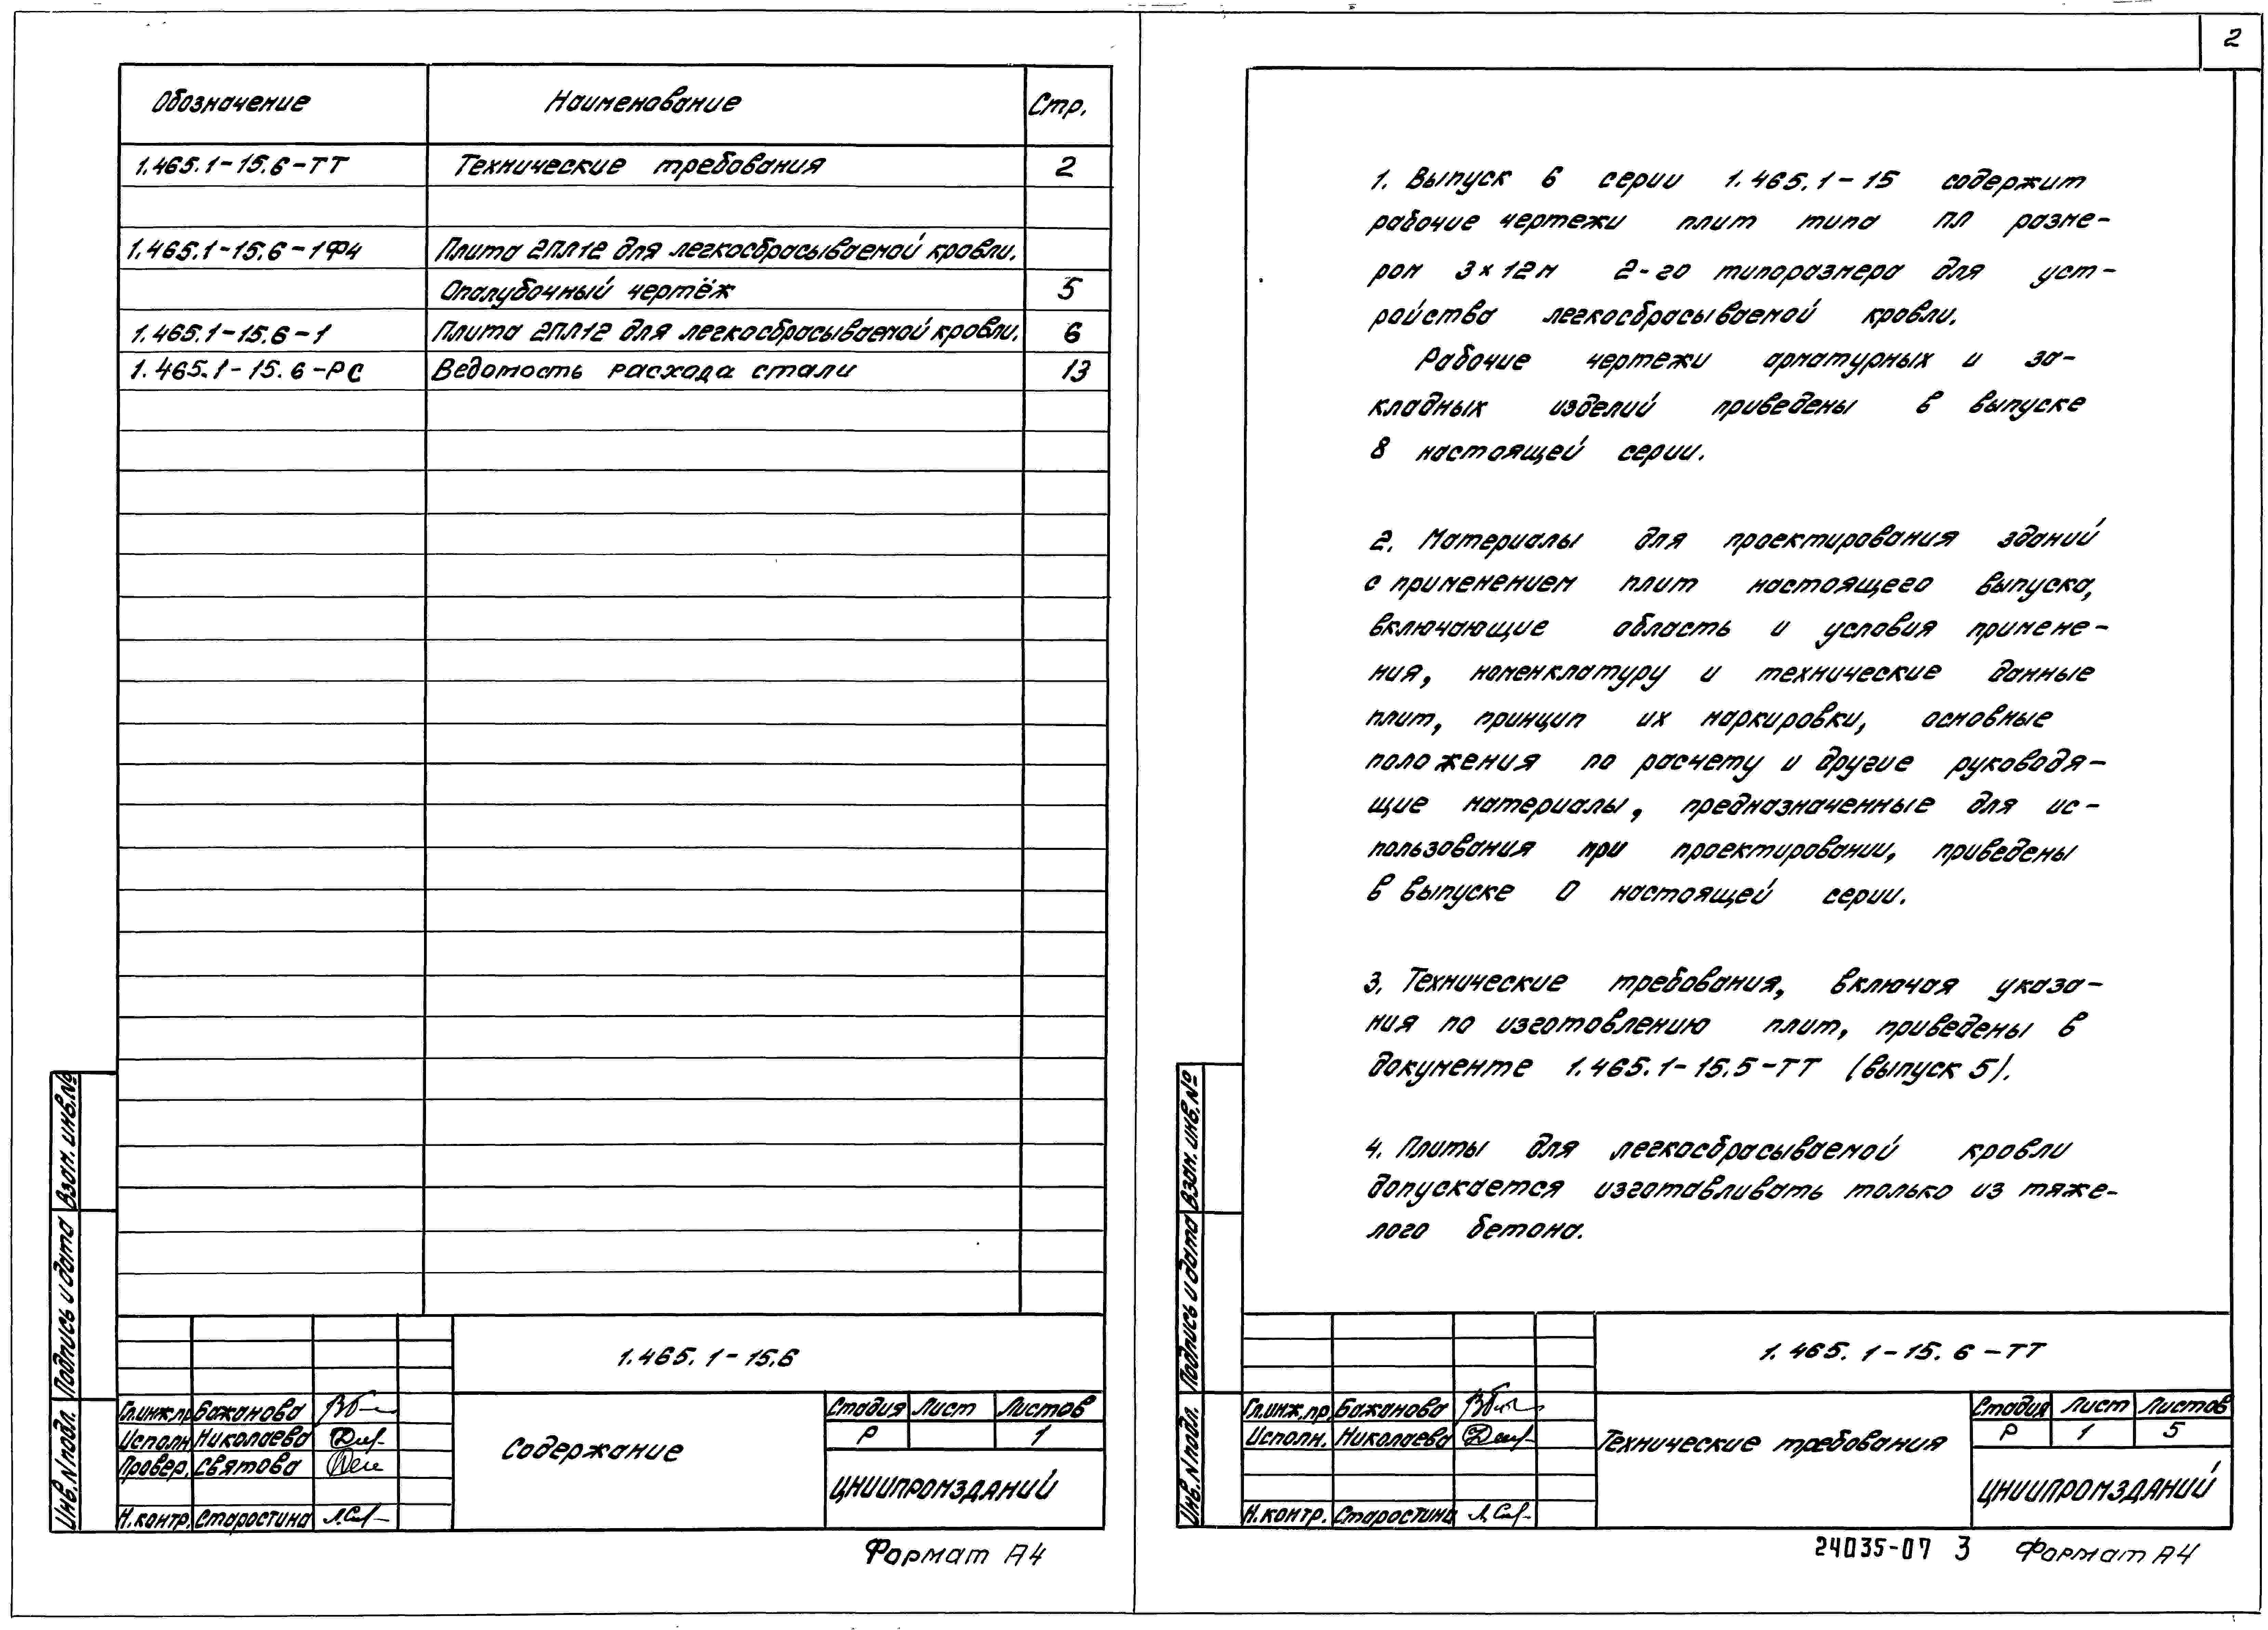 Обозначение Наименование Стр.
1.465.1-15.6-ТТ Технические требования 2
1.465.1-15.6-1Ф4 Плита 2ПЛ12 для легкосбрасываемой кровли.
Опалубочный чертёж 5
1.465.1-15.6-1 Плита 2ПЛ12 для легкосбрасываемой кровли. 6
1.465.1-15.6-РС Ведомость расхода стали 13
Взам. инв.№
Подпись и дата
Инв.N подл.
1.465.1-15.6
Гл.инж.пр Бажанова
Исполн Николаева
Провер. Святова
Н.контр. Старостина
Содержание
Стадия Лист Листов
Р 1
ЦНИИПРОМЗДАНИЙ
Формат А4
2
1. Выпуск 6 серии 1.465.1-15 содержит
рабочие чертежи плит типа ПЛ разме-
ром 3×12м 2-го типоразмера для уст-
ройства легкосбрасываемой кровли.
Рабочие чертежи арматурных и за-
кладных изделий приведены в выпуске
8 настоящей серии.
2. Материалы для проектирования зданий
с применением плит настоящего выпуска,
включающие область и условия примене-
ния, номенклатуру и технические данные
плит, принцип их маркировки, основные
положения по расчету и другие руководя-
щие материалы, предназначенные для ис-
пользования при проектировании, приведены
в выпуске 0 настоящей серии.
3. Технические требования, включая указа-
ния по изготовлению плит, приведены в
документе 1.465.1-15.5-ТТ (выпуск 5).
4. Плиты для легкосбрасываемой кровли
допускается изготавливать только из тяже-
лого бетона.
Взам. инв.№
Подпись и дата
Инв.N подл.
1.465.1-15.6-ТТ
Гл.инж.пр Бажанова
Исполн. Николаева
Н.контр. Старостина
Технические требования
Стадия Лист Листов
Р 1 5
ЦНИИПРОМЗДАНИЙ
24035-07 3 Формат А4